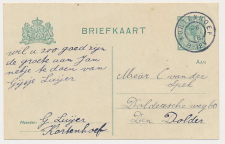 BRIEFKAART
wil u zoo goed zijn
de groete aan Jan
netje te doen van
Gijsje Luijer
G Luijer
Kortenhoef
AAN
Mejuf C van der
Dolderscheweg 60
Den Dolder